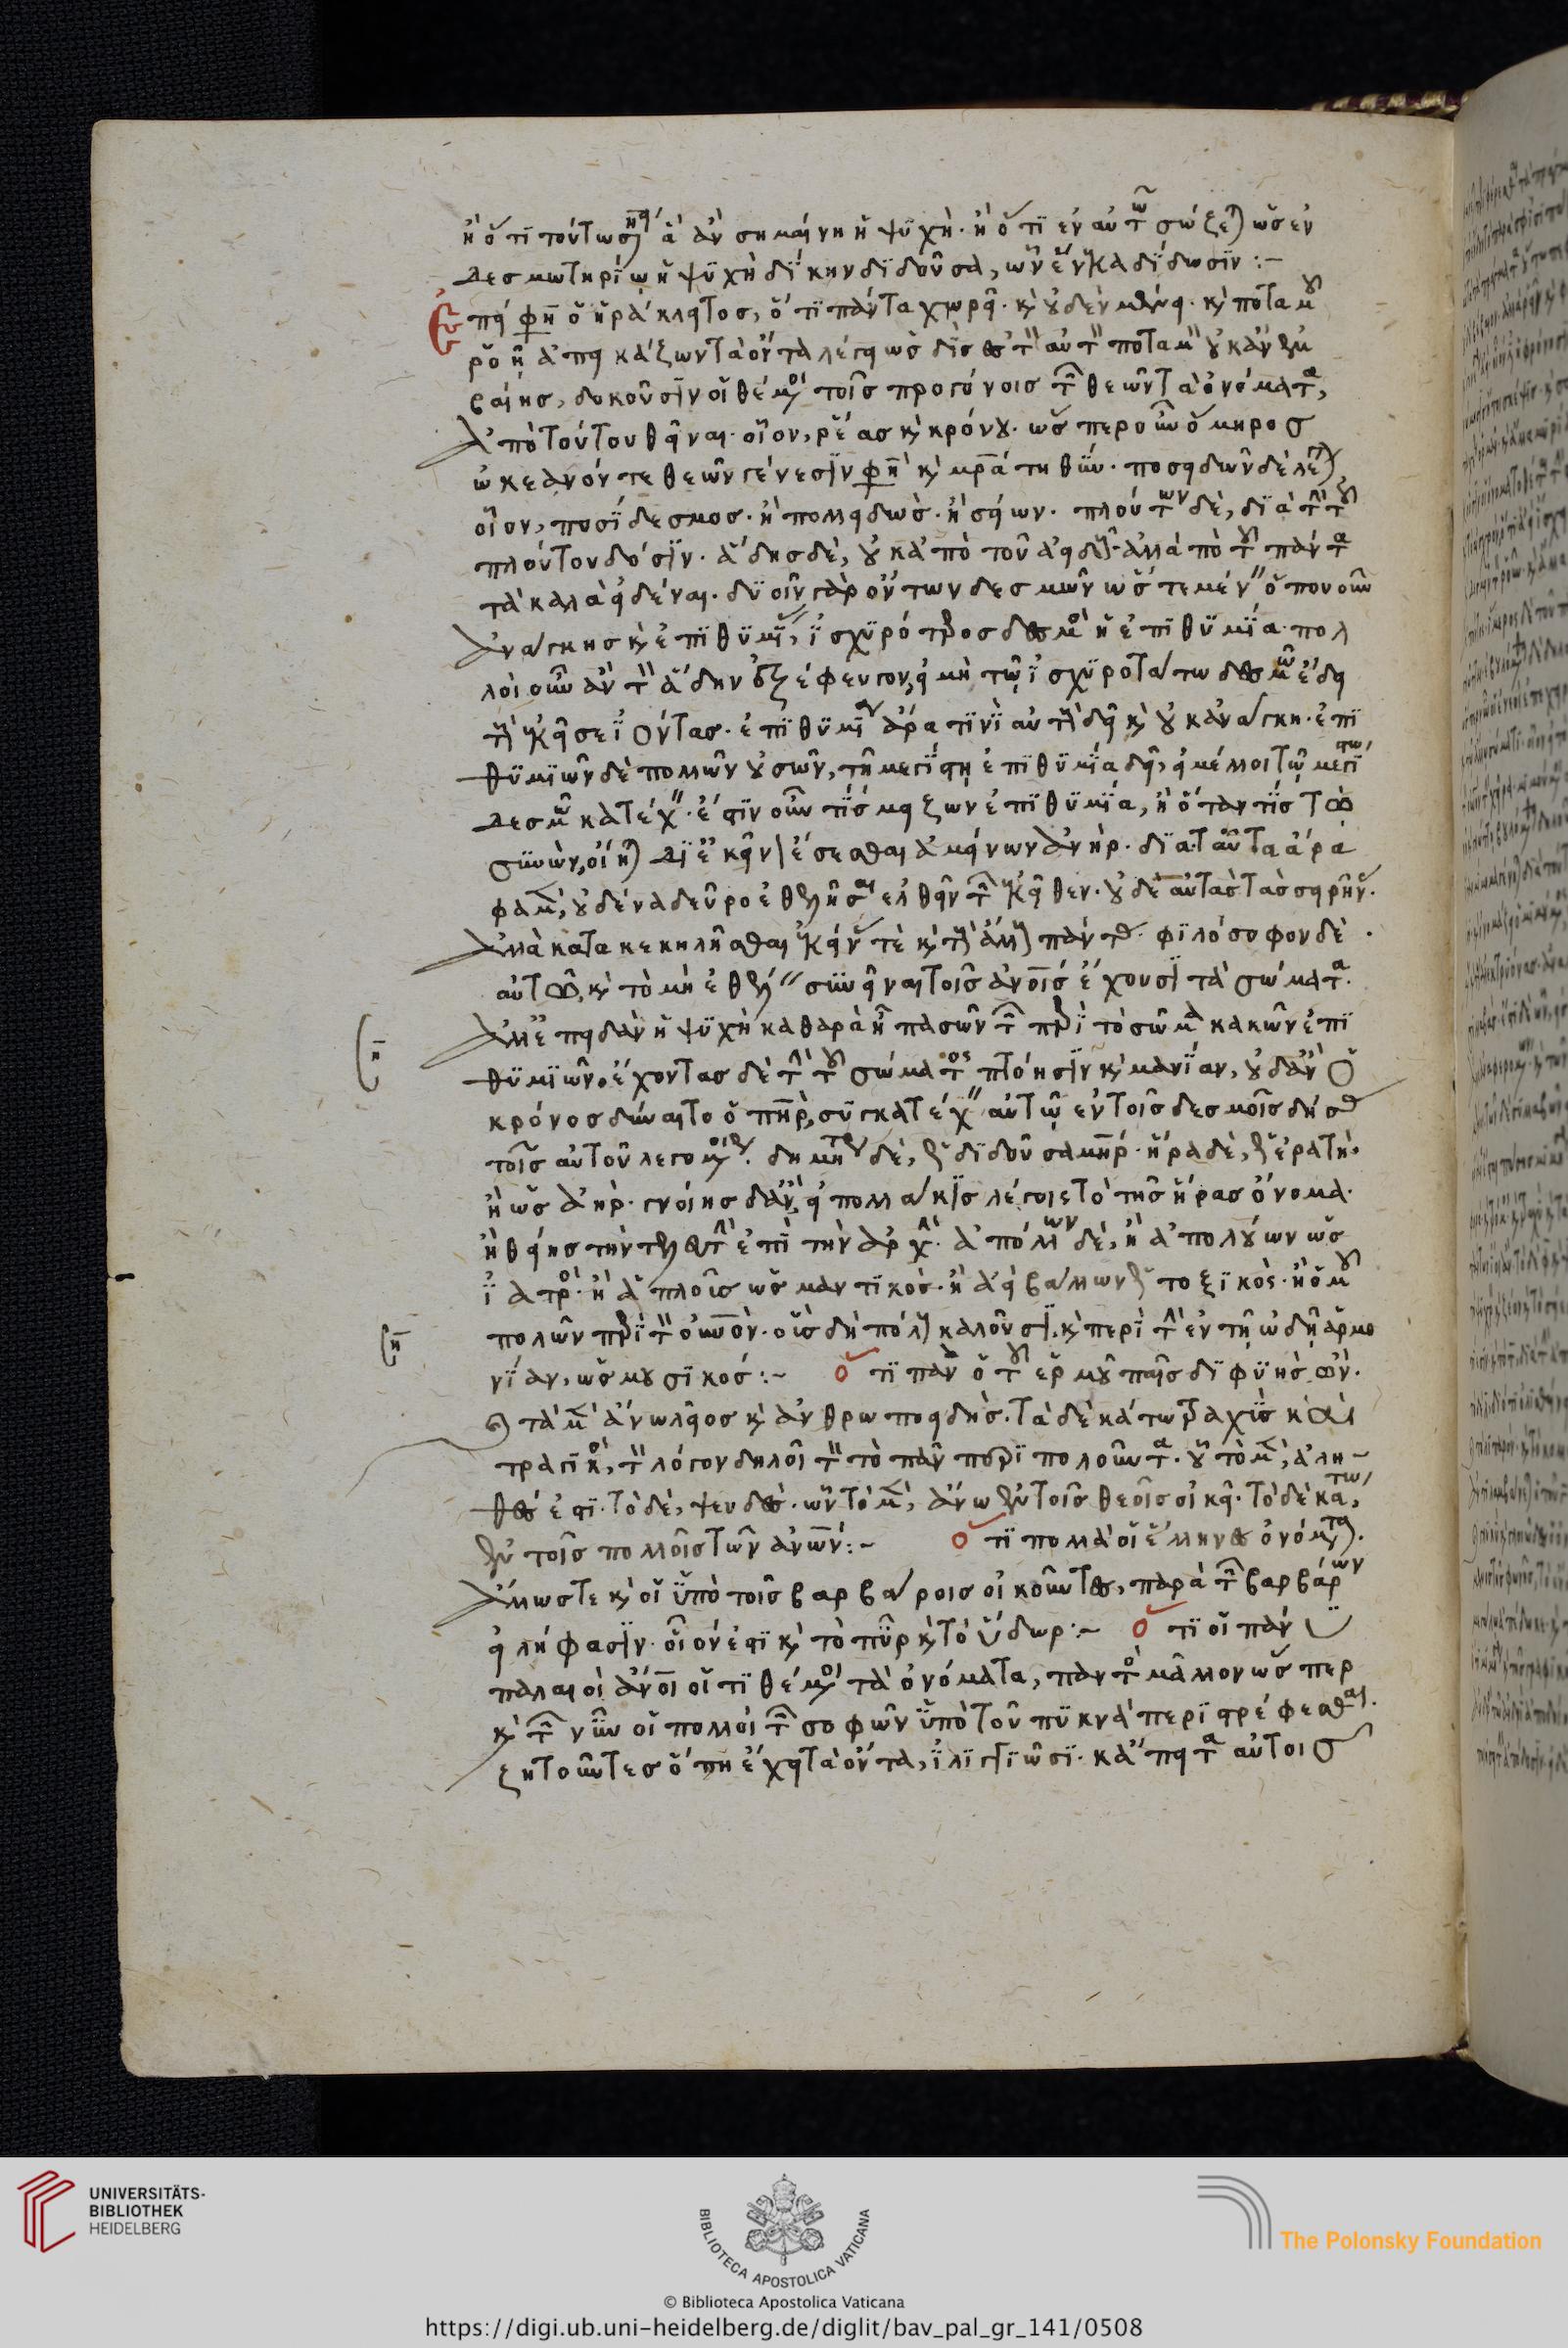 ἢ ὅτι τούτω σημαίνει ἃ ἂν σημαίνη ἡ ψυχή· ἢ ὅτι ἐν αὐτῶ σώζεται ὡς ἐν
δεσμωτηρίω ἡ ψυχὴ δίκην διδοῦσα, ὧν ἕνεκα δίδωσιν :-
Ἐπεί φησιν ὁ ἡράκλειτος, ὅτι πάντα χωρεῖ· καὶ οὐδὲν μένει· καὶ ποταμοῦ
ῥοῆ ἀπεικάζων τὰ ὄντα λέγει ὡς δὶς ἐς τὸν αὐτὸν ποταμὸν οὐκ ἂν ἐμ
βαίης, δοκοῦσιν οἱ θέμενοι τοῖς προγόνοις τῶν θεῶν τὰ ὀνόματα,
ἀπὸ τούτου θεῖναι· οἷον, ῥέας καὶ κρόνου· ὥσπερ οὖν ὅμηρος
ὠκεανόν τε θεῶν γένεσίν φησι καὶ μητέρα τηθύν· ποσειδῶν δὲ λέγεται
οἷον, ποσίδεσμος· ἢ πολλειδώς· ἢ σείων· πλούτων δὲ, διὰ τὴν τοῦ
πλούτου δόσιν· ἅδης δὲ, οὐκ ἀπὸ τοῦ ἀειδοῦς· ἀλλὰ ἀπὸ τοῦ πάντα
τὰ καλὰ εἰδέναι· δυοῖν γὰρ ὄντων δεσμῶν ὥστε μένειν ὅπου οὖν
ἀνάγκης καὶ ἐπιθυμίας, ἰσχυρότερος δεσμὸς ἡ ἐπιθυμία· πολ
λοὶ οὖν ἂν τὸν ἅδην ἐξέφευγον, εἰ μὴ τῶ ἰσχυροτάτω δεσμῶ ἔδει
τοὺς ἐκεῖσε ἰόντας· ἐπιθυμία ἄρα τινὶ αὐτοὺς δεῖ καὶ οὐκ ἀνάγκη· ἐπι
θυμιῶν δὲ πολλῶν οὐσῶν, τῆ μεγίστη ἐπιθυμία δεῖ, εἰ μέλλοι τῶ μεγίστω
δεσμῶ κατέχειν· ἔστιν οὖν τίς μείζων ἐπιθυμία, ἢ ὅταν τίς τω
συνὼν, οἴηται δι' ἐκεῖνον ἔσεσθαι ἀμείνων ἀνήρ· διὰ ταῦτα ἄρα
φαμὲν, οὐδένα δεῦρο ἐθελῆσαι ἐλθεῖν τῶν ἐκεῖθεν· οὐδὲ αὐτὰς τὰς σειρῆνας·
ἀλλὰ κατακεκηλῆσθαι ἐκείνας τὲ καὶ τοὺς ἄλλους πάντας· φιλόσοφον δὲ
αὐτοῦ, καὶ τὸ μὴ ἐθέλειν συνεῖναι τοῖς ἀνθρώποις ἔχουσι τὰ σώματα·
ἀλλ' ἐπειδὰν ἡ ψυχὴ καθαρὰ ἦ πασῶν τῶν περὶ τὸ σῶμα κακῶν ἐπι
θυμιῶν· ἔχοντας δὲ τὴν τοῦ σώματος πτόησιν καὶ μανίαν, οὐδ' ἂν ὁ
κρόνος δύναιτο ὁ πατὴρ, συγκατέχειν αὐτῶ ἐν τοῖς δεσμοῖς δήσας
τοῖς αὐτοῦ λεγομένοις· δημήτηρ δὲ, ἡ διδοῦσα μήτηρ· ἥρα δὲ, ἡ ἐρατή·
ἢ ὡς ἀήρ· γνοίης δ' ἂν, εἰ πολλάκις λέγοις τὸ τῆς ἥρας ὄνομα·
ἢ θείης τὴν τελευτὴν ἐπὶ τὴν ἀρχήν· ἀπόλλων δὲ, ἢ ἀπολούων ὡς
ἰατρός· ἢ ἁπλοῖς ὡς μαντικός· ἢ ἀεὶ βάλλων ὡς τοξικός· ἢ ὁμοῦ
πολῶν περὶ τὸν οὐρανὸν· οὓς δὴ πόλους καλοῦσι, καὶ περὶ τὴν ἐν τῆ ὠδῆ ἁρμο
νίαν, ὡς μουσικός :- ὅτι πὰν ὁ τοῦ ἑρμοῦ παῖς διφυὴς ὤν·
τὰ μὲν ἄνω λεῖος καὶ ἀνθρωποειδής· τὰ δὲ κάτω τραχὺς καὶ
τραγικὸς, τὸν λόγον δηλοῖ τὸν τὸ πᾶν περιπολοῦντα· οὗ τὸ μὲν, ἀλη-
θές ἐστι· τὸ δὲ, ψευδές· ὧν τὸ μὲν, ἄνω ἐν τοῖς θεοῖς οἰκεῖ· τὸ δὲ κάτω,
ἐν τοῖς πολλοῖς τῶν ἀνθρώπων :- ὅτι πολλὰ οἱ ἕλληνες ὀνόματα·
ἄλλως τε καὶ οἱ ὑπὸ τοῖς βαρβάροις οἰκοῦντες, παρὰ τῶν βαρβάρων
εἰλήφασιν· οἷον ἐστὶ καὶ τὸ πῦρ καὶ τὸ ὕδωρ :- ὅτι οἱ πάνυ
παλαιοὶ ἄνθρωποι οἱ τιθέμενοι τὰ ὀνόματα, παντὸς μᾶλλον ὥσπερ
καὶ τῶν νῦν οἱ πολλοὶ τῶν σοφῶν ὑπὸ τοῦ πυκνὰ περιστρέφεσθαι
ζητοῦντες ὅπη ἔχει τὰ ὄντα, ἰλιγγιῶσι· κἄπειτα αὐτοῖς
UNIVERSITÄTS-
BIBLIOTHEK
HEIDELBERG
BIBLIOTECA APOSTOLICA VATICANA
The Polonsky Foundation
© Biblioteca Apostolica Vaticana
https://digi.ub.uni-heidelberg.de/diglit/bav_pal_gr_141/0508